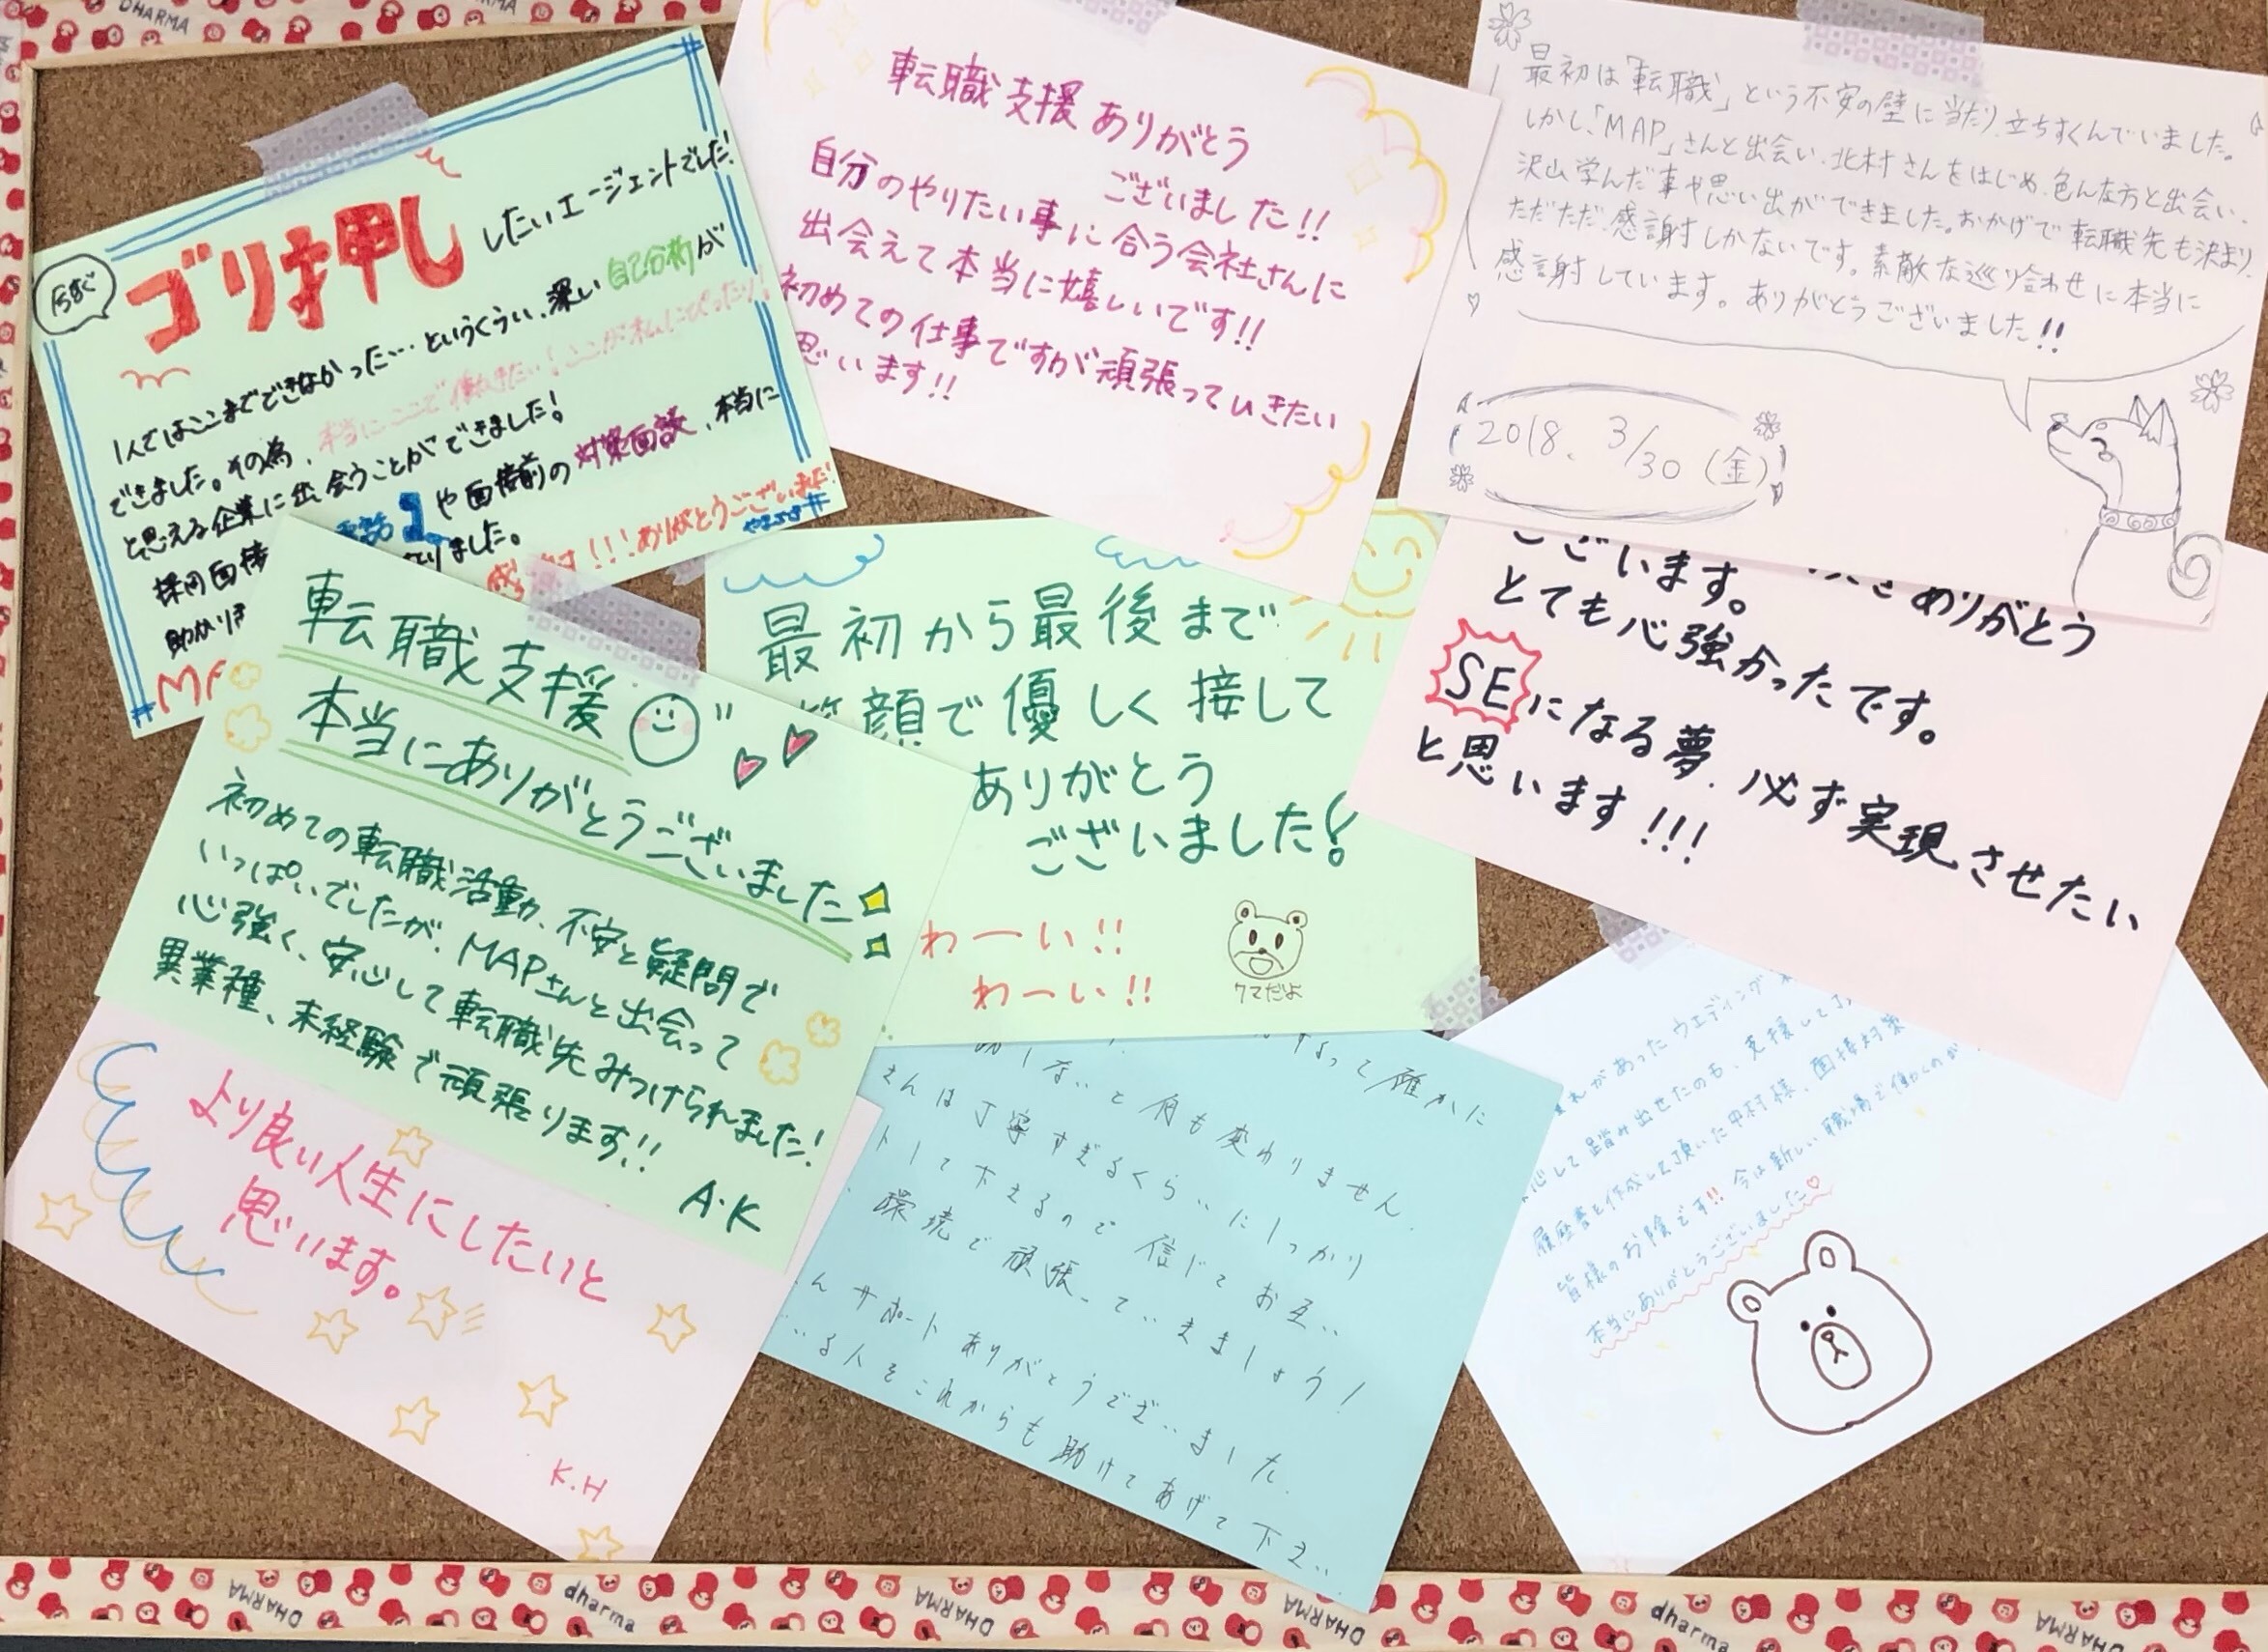 今すぐ
ゴリ押ししたいエージェントでした!
1人ではここまでできなかった…というくらい、深い自己分析が
できました。その為、本当にここで働きたい!ここが私にぴったり!
と思える企業に出会うことができました!
採用面接 電話 や面接前の対策面談、本当に
助かりま なりました。
感謝!!!ありがとうございました!
転職支援ありがとう
ございました!!
自分のやりたい事に合う会社さんに
出会えて本当に嬉しいです!!
初めての仕事ですが頑張っていきたい
思います!!
最初は「転職」という不安の壁に当たり、立ちすくんでいました。
しかし、「MAP」さんと出会い、北村さんをはじめ、色んな方と出会い、
沢山学んだ事や思い出ができました。おかげで転職先も決まり、
ただただ、感謝しかないです。素敵な巡り合わせに本当に
感謝しています。ありがとうございました!!
2018. 3/30 (金)
転職支援
本当にありがとうございました
初めての転職活動、不安と疑問で
いっぱいでしたが、MAPさんと出会って
心強く、安心して転職先みつけられました!
異業種、未経験で頑張ります!!
A.K
最初から最後まで
笑顔で優しく接して
ありがとう
ございました!
わーい!!
わーい!!
クマだよ
ありがとう
ございます。
とても心強かったです。
SEになる夢、必ず実現させたい
と思います!!!
より良い人生にしたいと
思います。
K.H
って確かに
しないと何も変わりません。
さんは丁寧すぎるくらいにしっかり
トして下さるので信じてお互い
環境で頑張っていきましょう!
んサポートありがとうございました。
いる人をこれからも助けてあげて下さい。
れがあったウェディング
心して踏み出せたのも、支援して
履歴書を作成して頂いた中村様、面接対策
皆様のお陰です!!今は新しい職場で働くのが
本当にありがとうございました♡
DHARMA
DHARMA
dharma
DHARMA
DHARMA
dharma
DHARMA